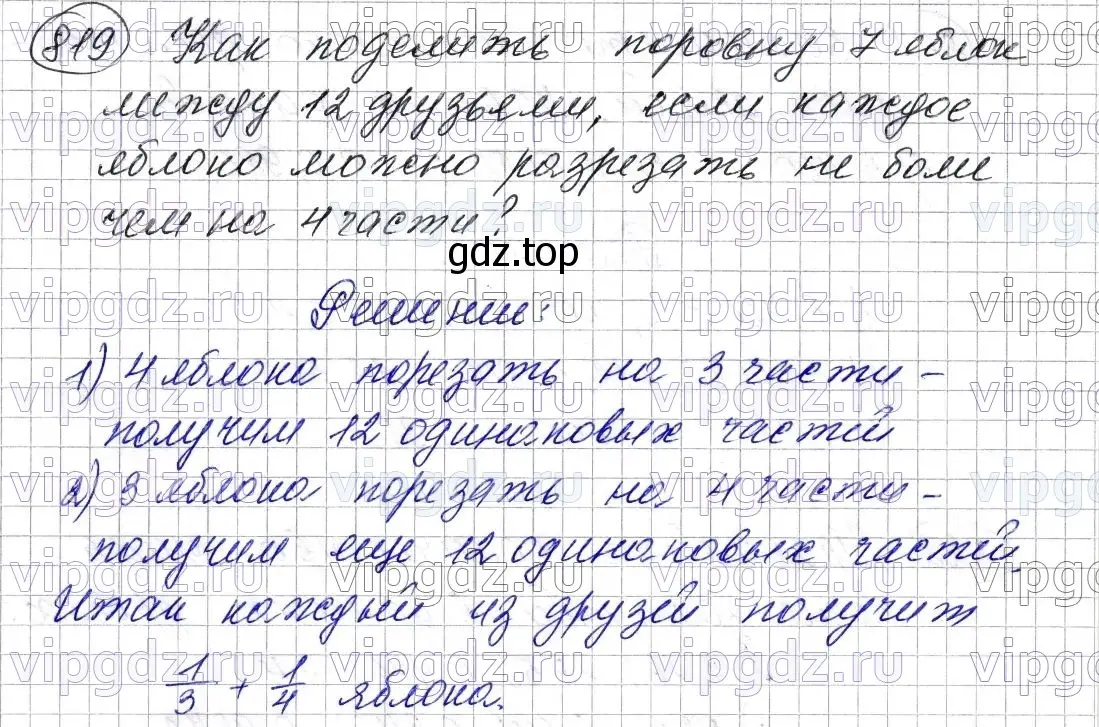 819 Как поделить поровну 7 яблок
между 12 друзьями, если каждое
яблоко можно разрезать не боле
чем на 4 части?
gdz.top
Решение:
1) 4 яблока порезать на 3 части -
получим 12 одинаковых частей
2) 3 яблока порезать на 4 части -
получим еще 12 одинаковых частей.
Итак каждый из друзей получит
1/3 + 1/4 яблока.
vipgdz.ru